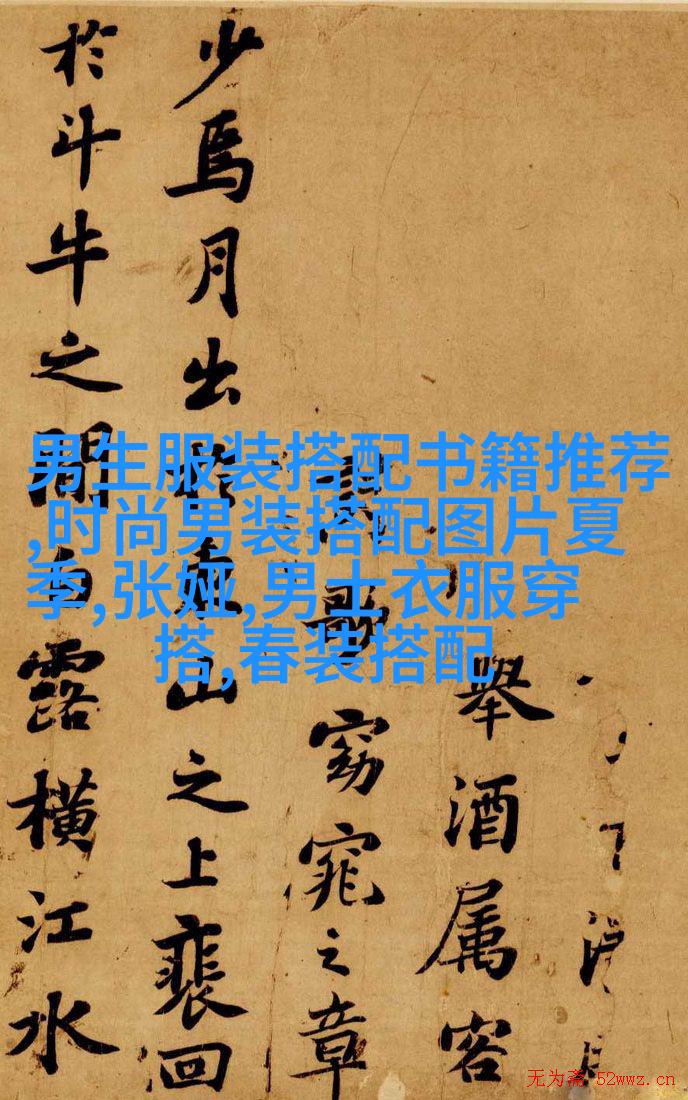 舉酒属客
歌窈窕之章
少焉月出於東山之上裴回
於斗牛之間白露橫江水
男生服装搭配书籍推荐
,时尚男装搭配图片夏
季,张娅,男士衣服穿
搭,春装搭配
无为斋 52wwz.cn